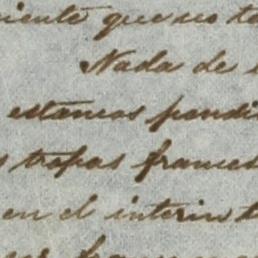 iente que no te
Nada de
estamos pendi
s tropas frances
en el interin t